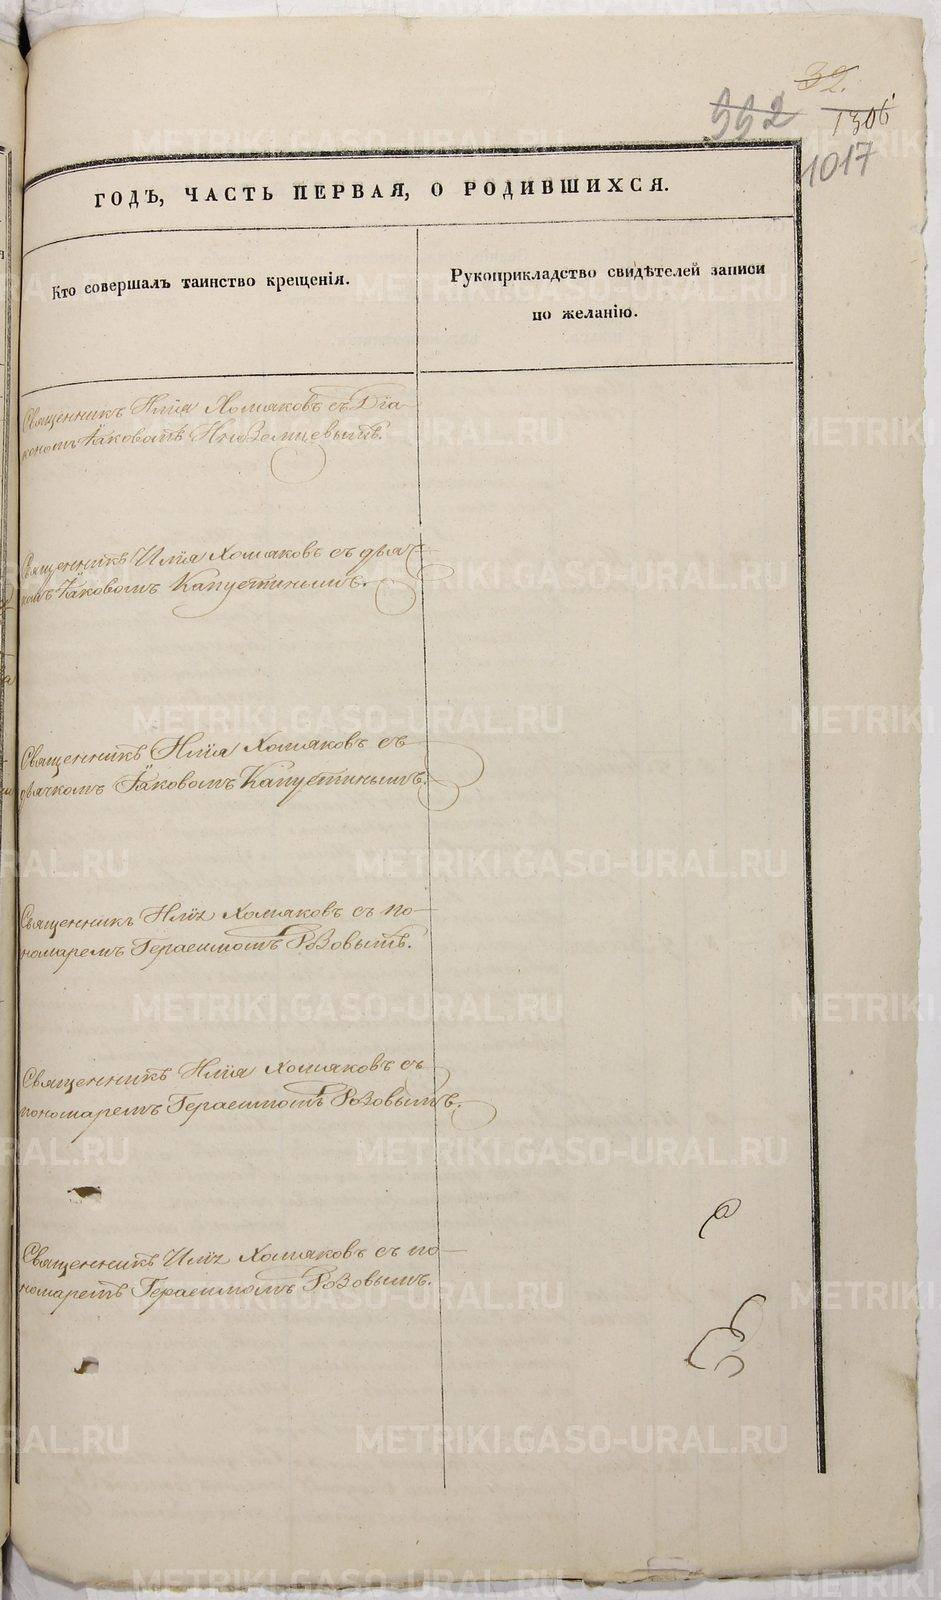 32.
992 1306
1017
ГОДЪ, ЧАСТЬ ПЕРВАЯ, О РОДИВШИХСЯ.
Кто совершалъ таинство крещенія.
Рукоприкладство свидѣтелей записи
по желанію.
Священникъ Илїа Хомяковъ съ Дїа-
кономъ Їаковомъ Иноземцевымъ.
Священникъ Илїа Хомяковъ съ дьяч-
комъ Їаковомъ Капустинымъ.
Священникъ Илїа Хомяковъ съ
дьячкомъ Їаковомъ Капустинымъ.
Священникъ Илїа Хомяковъ съ по-
номаремъ Герасимомъ Розовымъ.
Священникъ Илїа Хомяковъ съ
пономаремъ Герасимомъ Розовымъ.
Священникъ Илїа Хомяковъ съ по-
номаремъ Герасимомъ Розовымъ.
METRIKI.GASO-URAL.RU